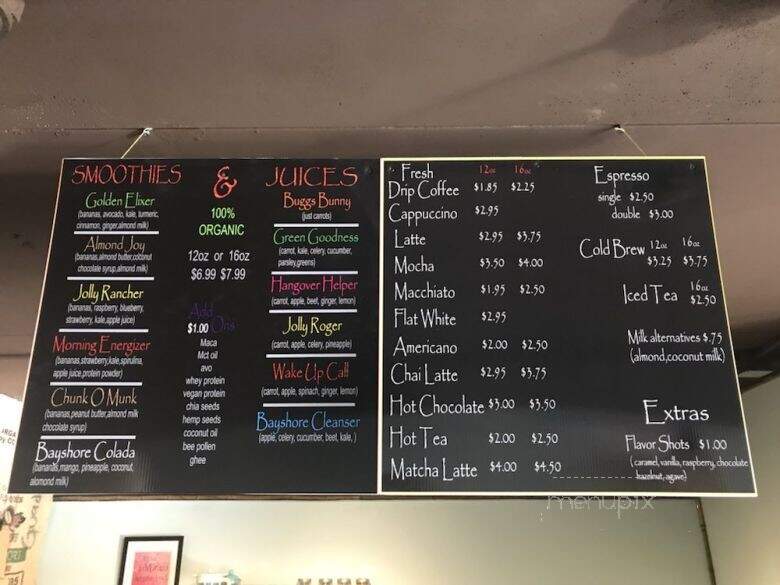 SMOOTHIES & JUICES
Golden Elixer
(bananas, avocado, kale, turmeric,
cinnamon, ginger,almond milk)
Almond Joy
(bananas,almond butter,coconut
chocolate syrup,almond milk)
Jolly Rancher
(bananas, raspberry, blueberry,
strawberry, kale,apple juice)
Morning Energizer
(bananas,strawberry,kale,spirulina,
apple juice,protein powder)
Chunk O Munk
(bananas,peanut butter,almond milk
chocolate syrup)
Bayshore Colada
(bananas,mango, pineapple, coconut,
alomond milk)
100%
ORGANIC
12oz or 16oz
$6.99 $7.99
Add
$1.00 Ons
Maca
Mct oil
avo
whey protein
vegan protein
chia seeds
hemp seeds
coconut oil
bee pollen
ghee
Buggs Bunny
(just carrots)
Green Goodness
(carrot, kale, celery, cucumber,
parsley,greens)
Hangover Helper
(carrot, apple, beet, ginger, lemon)
Jolly Roger
(carrot, apple, celery, pineapple)
Wake Up Call
(carrot, apple, spinach, ginger, lemon)
Bayshore Cleanser
(apple, celery, cucumber, beet, kale, )
Fresh 12oz 16oz
Drip Coffee $1.85 $2.25
Cappuccino $2.95
Latte $2.95 $3.75
Mocha $3.50 $4.00
Macchiato $1.95 $2.50
Flat White $2.95
Americano $2.00 $2.50
Chai Latte $2.95 $3.75
Hot Chocolate $3.00 $3.50
Hot Tea $2.00 $2.50
Matcha Latte $4.00 $4.50
Espresso
single $2.50
double $3.00
Cold Brew 12oz 16oz
$3.25 $3.75
Iced Tea 16oz
$2.50
Milk alternatives $.75
(almond,coconut milk)
Extras
Flavor Shots $1.00
(caramel, vanilla, raspberry, chocolate
hazelnut, agave)
menupix